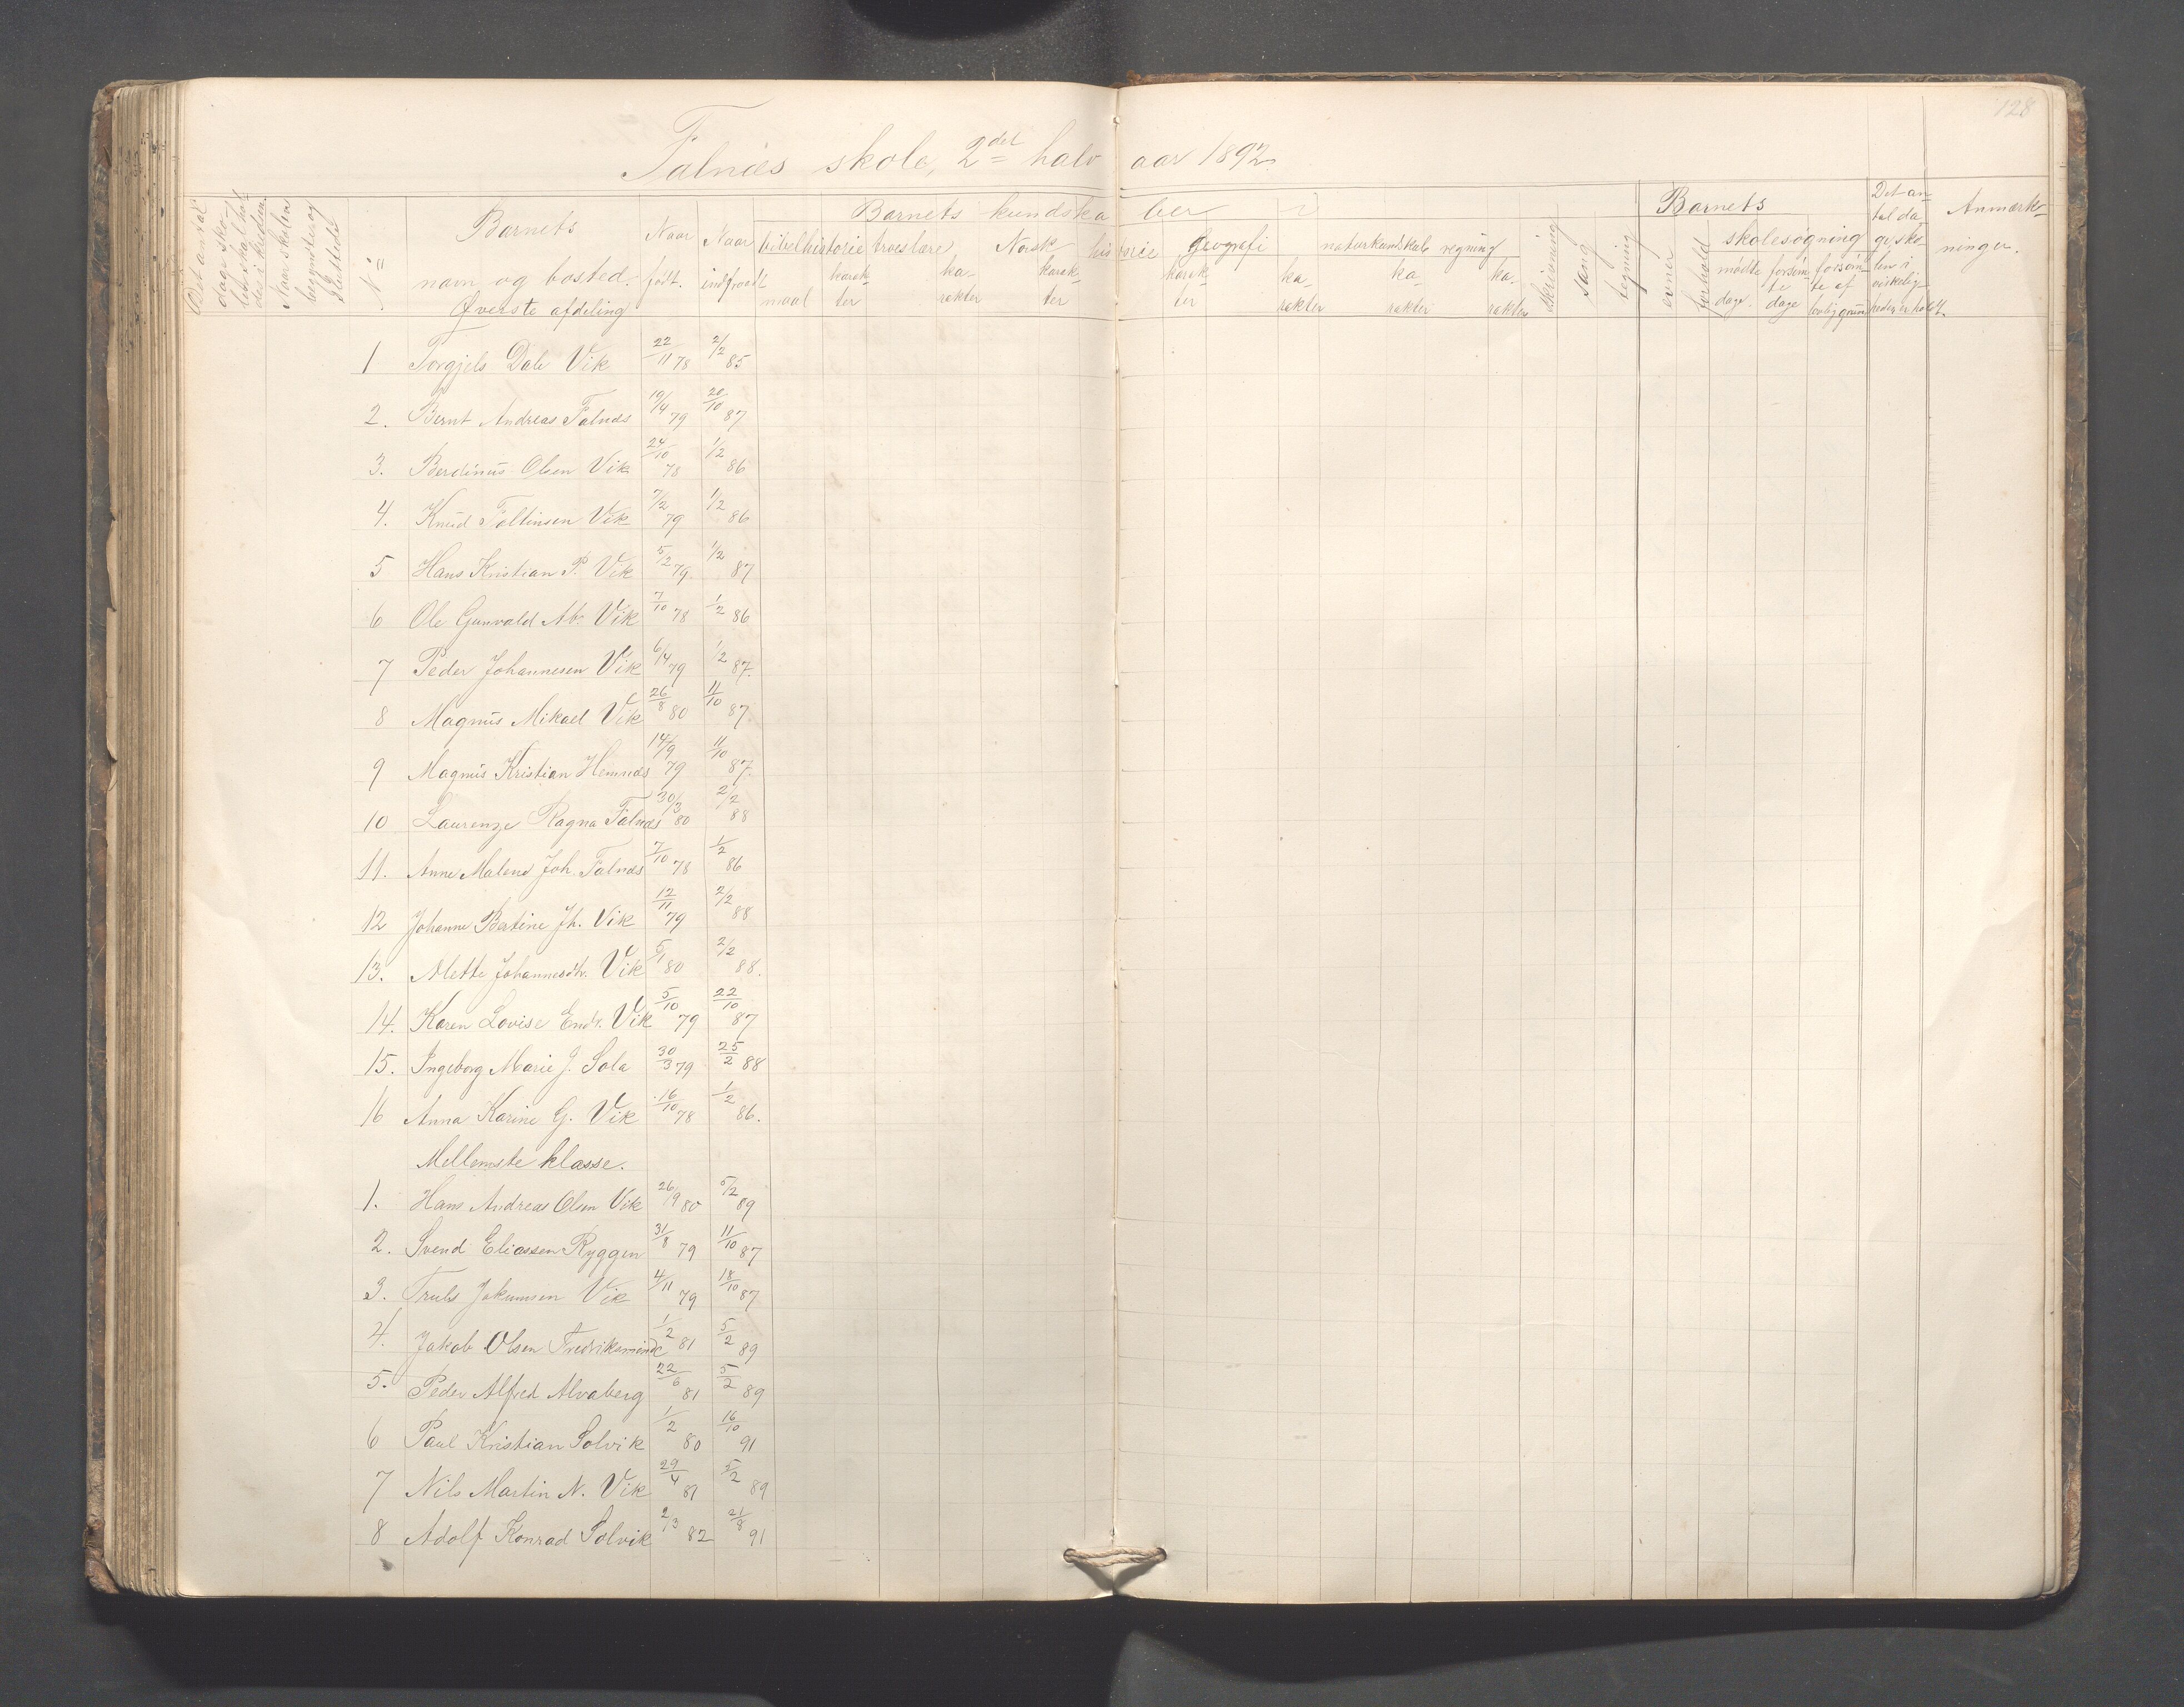 128
Falnæs skole, 2det halvaar 1892.
Det antal dage i skolen skal holdes i kredsen.
Naar skolen begyndte og sluttede
No
Barnets navn og bosted.
Øverste afdeling
Naar født.
Naar indtraadt
Barnets kundskaber i
bibelhistorie troeslære Norsk historie Geografi naturkundskab regning
maal karakter karakter karakter karakter karakter karakter karakter
skrivning
sang
tegning
Barnets
evner
forhold
skolesøgning
mødte dage. forsømte dage forsømte af lovlig grund
Det antal dage skolen i virkeligheden er holdt.
Anmærkninger.
1 Torgjels Dale Vik 22/11 78 2/2 85
2. Bernt Andreas Falnæs 19/4 79 20/10 87
3. Berdinus Olsen Vik 24/10 78 1/2 86
4. Knud Tollinsen Vik 7/2 79 1/2 86
5 Hans Kristian P. Vik 5/2 79 1/2 87
6 Ole Gunvald Ab. Vik 7/10 78 1/2 86
7 Peder Johannesen Vik 6/4 79 1/2 87.
8 Magnus Mikael Vik 26/8 80 11/10 87.
9 Magnus Kristian Hemnæs 14/9 79 11/10 87.
10 Laurenze Ragna Falnæs 30/3 80 2/2 88
11. Anne Malene Joh. Falnæs 7/10 78 1/2 86
12 Johanne Bertine Jh. Vik 12/11 79 2/2 88
13. Mette Johannesdtr. Vik 5/1 80 2/2 88.
14. Karen Lovise Endr. Vik 5/10 79 22/10 87
15. Ingeborg Marie J. Sola 30/3 79 25/2 88
16 Anna Karine G. Vik 16/10 78 1/2 86.
Mellemste klasse.
1. Hans Andreas Olsen Vik 26/9 80 5/2 89
2. Svend Eliassen Ryggen 31/8 79 11/10 87
3. Truls Jakumsen Vik 4/11 79 18/10 87
4. Jakob Olsen Fredriksminde 1/2 81 5/2 89
5. Peder Alfred Alvaberg 22/6 81 5/2 89
6 Paul Kristian Solvik 1/2 80 16/10 91
7 Nils Martin N. Vik 29/4 81 5/2 89
8 Adolf Konrad Solvik 2/3 82 21/8 91